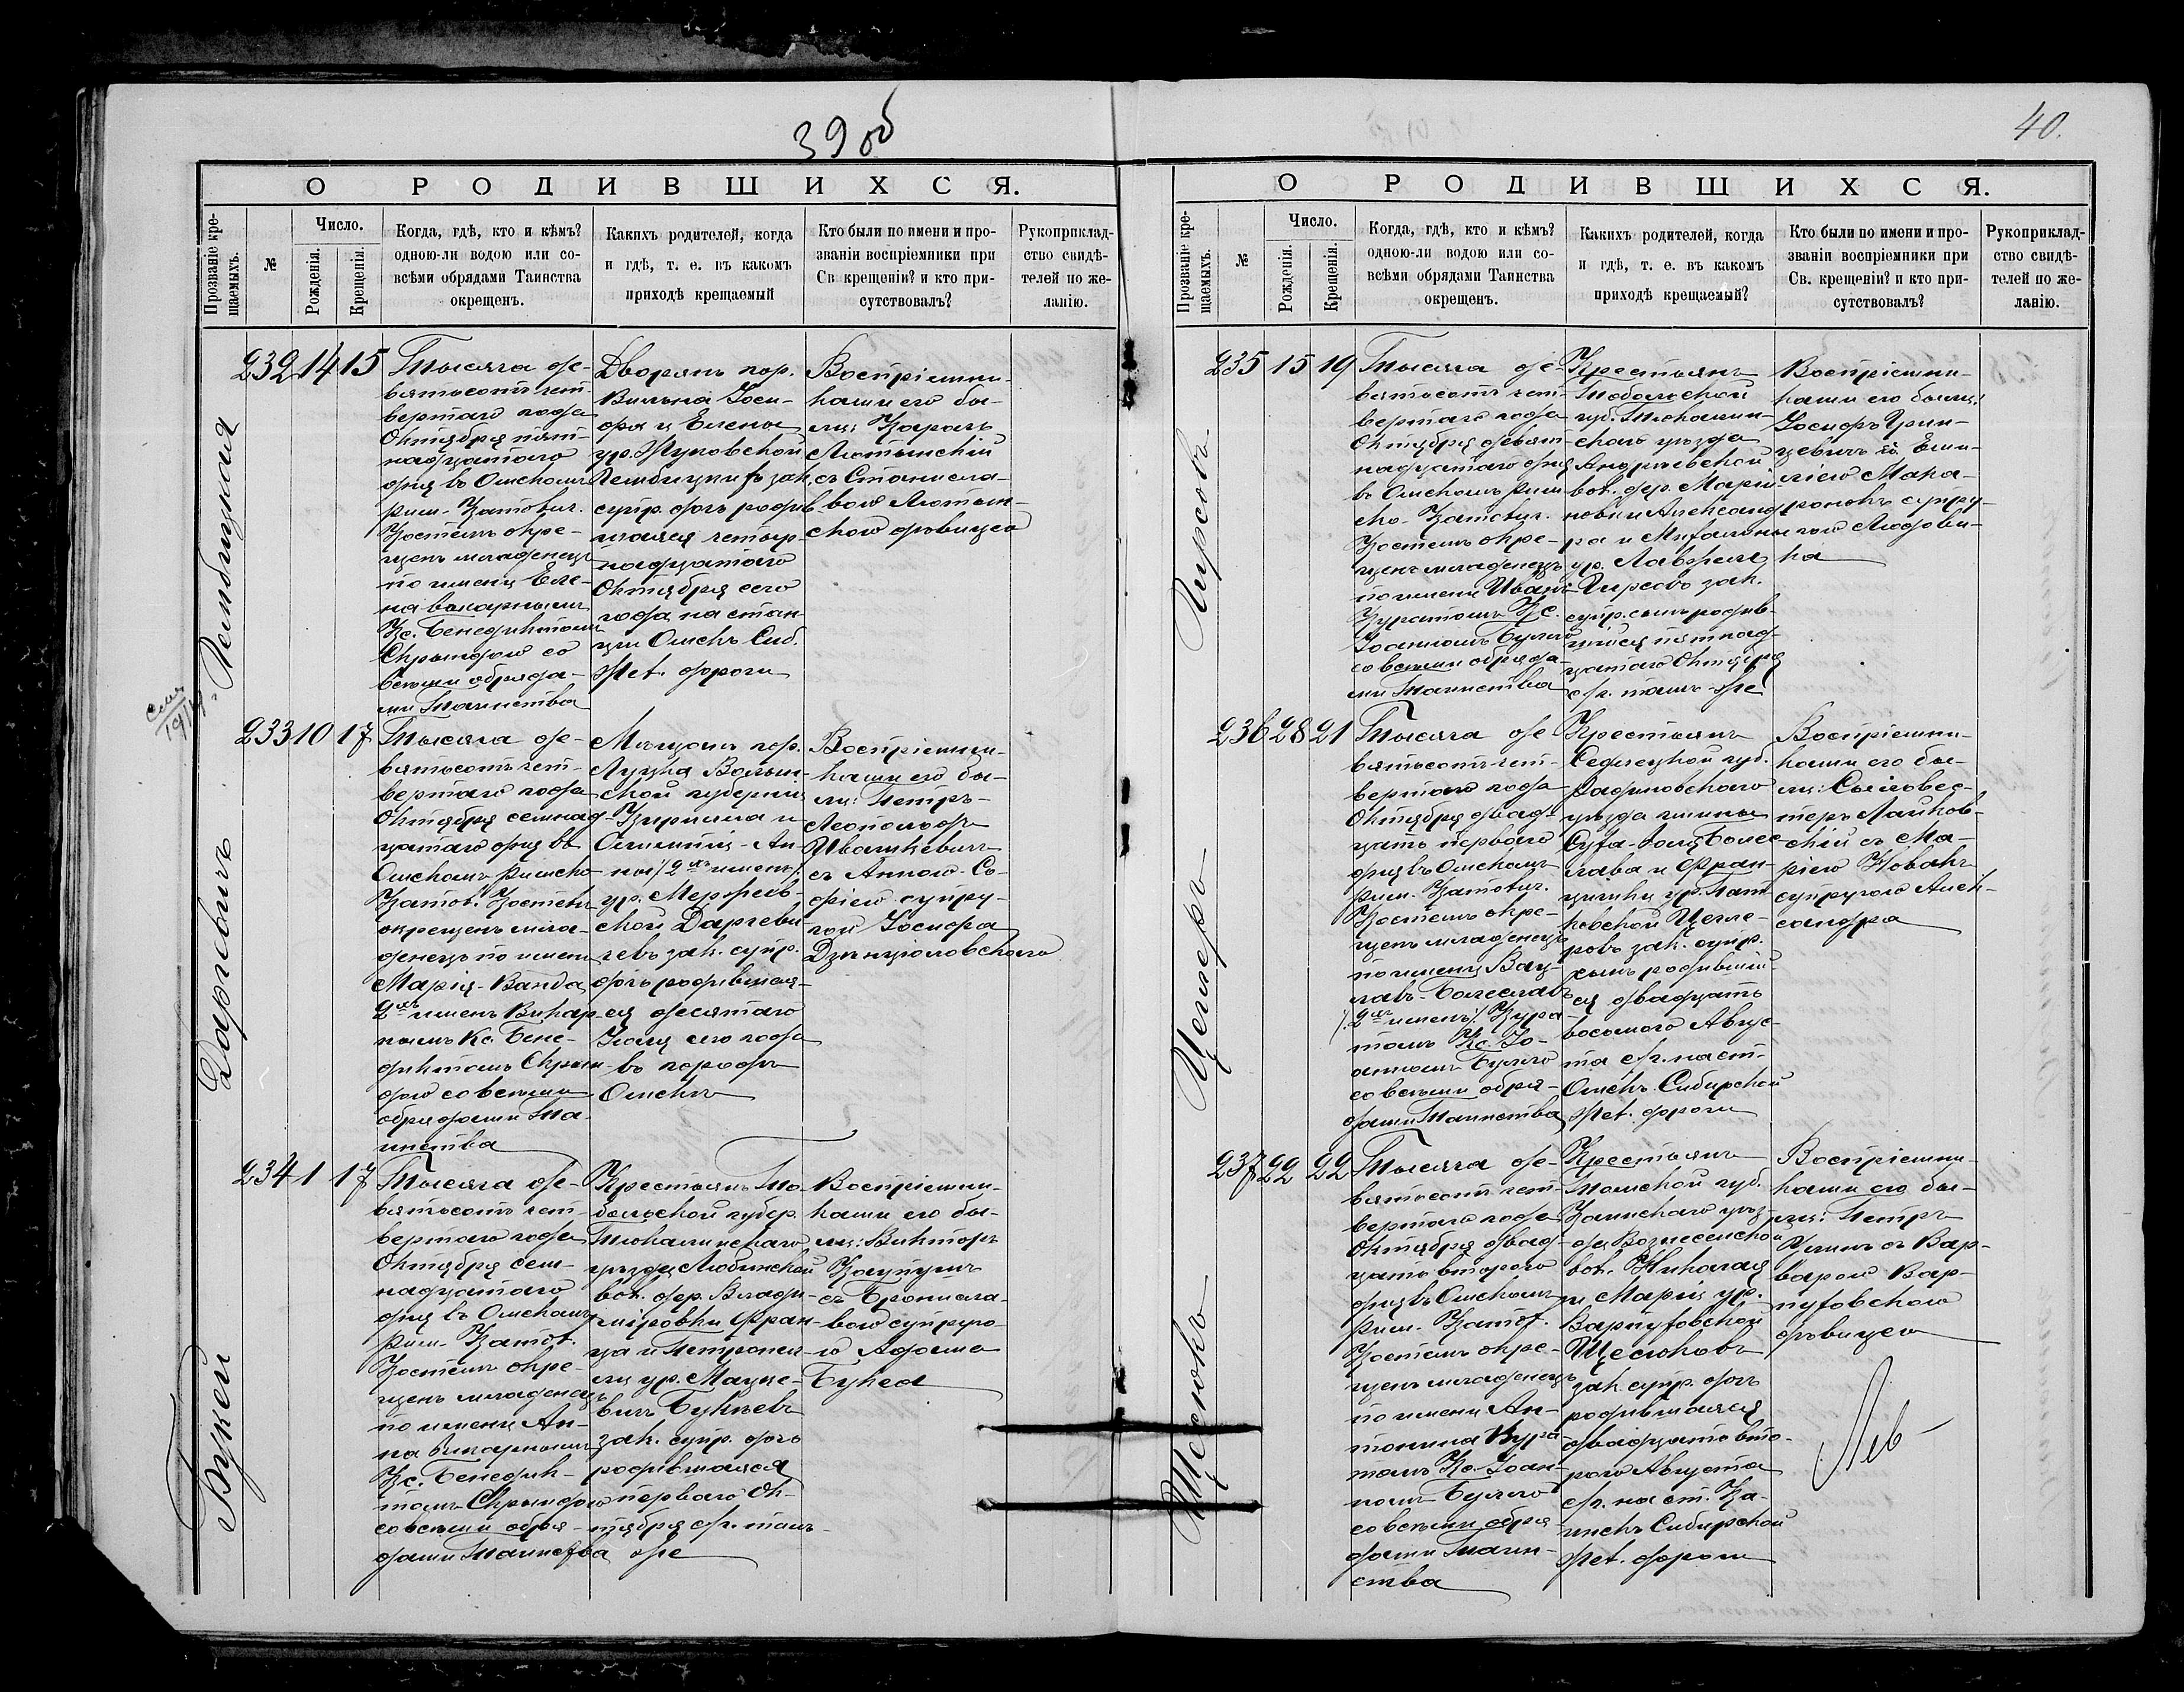 39 об
О РОДИВШИХСЯ.
Прозваніе кре-
щаемыхъ.
№
Число.
Рожденія.
Крещенія.
Когда, гдѣ, кто и кѣмъ?
одною-ли водою или со-
всѣми обрядами Таинства
окрещенъ.
Какихъ родителей, когда
и гдѣ, т. е. въ какомъ
приходѣ крещаемый
Кто были по имени и про-
званіи воспріемники при
Св крещеніи? и кто при-
сутствовалъ?
Рукоприклад-
ство свидѣ-
телей по же-
ланію.
232 14 15
Тысяча де-
вятьсотъ чет-
вертаго года
Октября пят-
надцатаго
дня въ Омскомъ
Рим. Католич.
Костелѣ окре-
щенъ младенецъ
по имени Еле-
на викарнымъ
Кс. Бенедиктомъ
Скрындою со
всѣми обряда-
ми Таинства
Дворянъ гор.
Вильна Іоси-
фа и Елены
ур. Жуковской
зак.
супр. дочь родив-
шаяся четыр-
надцатаго
Октября сего
года на стан-
ціи Омскъ Сиб.
Жел. дороги
Воспріемни-
ками его бы-
ли: Кароль
съ Станисла-
вою
дѣвицею
233 10 17
Даргевичъ
Тысяча де-
вятьсотъ чет-
вертаго года
Октября семнад-
цатаго дня въ
Омскомъ Римско
Катол. Костелѣ
окрещенъ мла-
денецъ по имени
Марія-Ванда
2хъ именъ Викар-
нымъ Кс. Бене-
диктомъ Скрын-
дою со всѣми
обрядами Та-
инства
Мѣщанъ гор.
Луцка Волын-
ской губерніи
Кирилла и
Ан-
ны /2хъ именъ/
ур.
ской Даргеви-
чевъ зак. супр.
дочь родившая-
ся десятаго
Іюля сего года
въ городѣ
Омскѣ
Воспріемни-
ками его бы-
ли: Петръ-
Леопольдъ
Ивашкевичъ
съ Анною-Со-
фіею супру-
гой Іосифа
234 1 17
Букей
Тысяча де-
вятьсотъ чет-
вертаго года
Октября сем-
надцатаго
дня въ Омскомъ
Рим. Катол.
Костелѣ окре-
щенъ младенецъ
по имени Ан-
на Викарнымъ
Кс. Бенедик-
томъ Скрындою
со всѣми обря-
дами Таинства
Крестьянъ То-
больской губер.
Тюкалинскаго
уѣзда Любинской
вол. дер. Влади-
міровки Фран-
ца и Петронел-
ли ур. Мацке-
вичъ Букѣевъ
зак. супр. дочь
родившаяся
перваго Ок-
тября с/г. тамъ-
же
Воспріемни-
ками его бы-
ли: Викторъ
съ Бронисла-
вою супруго-
ю Адама
Букея
40.
О РОДИВШИХСЯ.
Прозваніе кре-
щаемыхъ.
№
Число.
Рожденія.
Крещенія.
Когда, гдѣ, кто и кѣмъ?
одною-ли водою или со-
всѣми обрядами Таинства
окрещенъ.
Какихъ родителей, когда
и гдѣ, т. е. въ какомъ
приходѣ крещаемый?
Кто были по имени и про-
званіи воспріемники при
Св. крещеніи? и кто при-
сутствовалъ?
Рукоприклад-
ство свидѣ-
телей по же-
ланію.
235 15 19
Тысяча де-
вятьсотъ чет-
вертаго года
Октября девят-
надцатаго дня
въ Омскомъ Рим-
ско-Католич.
Костелѣ окре-
щенъ младенецъ
по имени Иванъ
Куратомъ Кс.
Іоанномъ Булло
со всѣми обряда-
ми Таинства
Крестьянъ
Тобольской
губ. Тюкалин-
скаго уѣзда
Андреевской
вол. дер. Марі-
новки Александ-
ра и
ур.
зак.
супр. сынъ родив-
шійся пятнад-
цатаго Октября
с/г. тамъ-же
Воспріемни-
ками его были:
Іосифъ Грин-
цевичъ съ Еми-
ліею Мака-
супру-
гою Людови-
ка
236 28 21
Цеглеръ
Тысяча де-
вятьсотъ чет-
вертаго года
Октября двад-
цать перваго
дня въ Омскомъ
Рим. Католич.
Костелѣ окре-
щенъ младенецъ
по имени Вац-
лавъ-Болеславъ
/2хъ именъ/ Кура-
томъ Кс. Іо-
анномъ Булло
со всѣми обря-
дами Таинства
Крестьянъ
Седлецкой губ.
Радиновскаго
уѣзда гмины
Болес-
лава и Фран-
цишки ур. Пят-
ковской Цегле-
ровъ зак. супр.
сынъ родившій-
ся двадцать
восьмого Авгус-
та с/г. на ст.
Омскъ Сибирской
Жел. дороги
Воспріемни-
ками его бы-
ли: Сильвес-
теръ
съ Ма-
ріею Новакъ
супругою Алек-
сандра
237 22 22
Щесюкъ
Тысяча де-
вятьсотъ чет-
вертаго года
Октября двад-
цать второго
дня въ Омскомъ
Рим. Катол.
Костелѣ окре-
щенъ младенецъ
по имени Ан-
тонина Кура-
томъ Кс. Іоан-
номъ Булло
со всѣми обря-
дами Таин-
ства
Крестьянъ
Томской губ.
Каинскаго уѣз-
да Вознесенской
вол. Николая
и Маріи ур.
Щесюковъ
зак. супр. дочь
родившаяся
двадцать вто-
рого Августа
с/г. на ст. Ка-
инскъ Сибирской
Жел. дороги
Воспріемни-
ками его бы-
ли: Петръ
съ Вар-
варою Вар-
дѣвицею